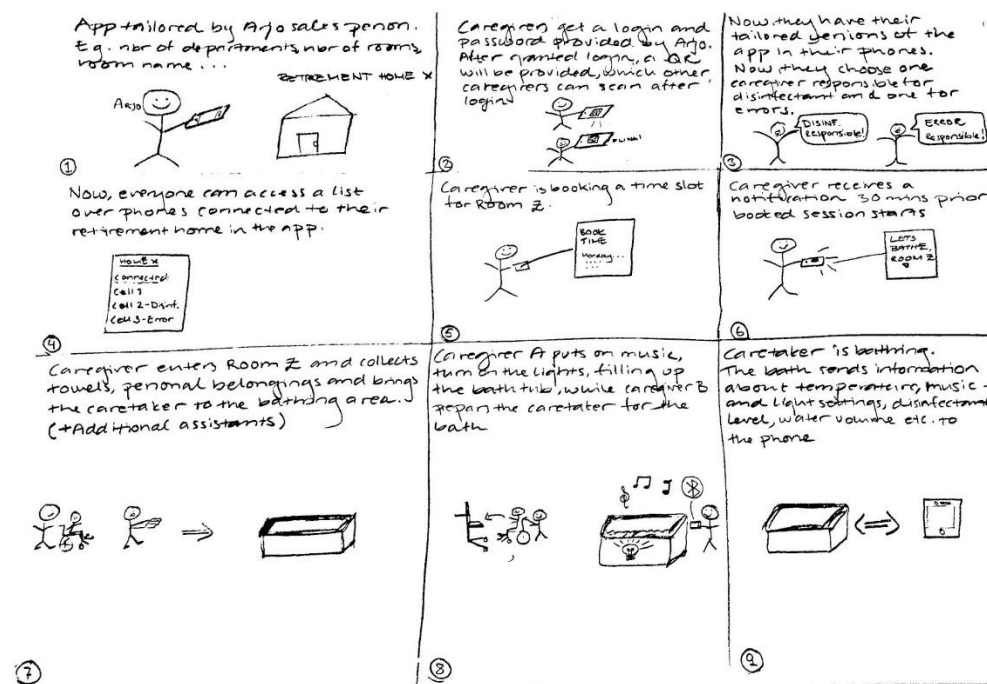 App tailored by Arjo sales person.
E.g. nbr of departments, nbr of rooms,
room name...
RETIREMENT HOME X
Arjo
1
Caregivers get a login and
password provided by Arjo.
After granted login, a QR
will be provided, which other
caregivers can scan after
login
BLING!
2
Now they have their
tailored versions of the
app in their phones.
Now they choose one
caregiver responsible for
disinfectant and one for
errors.
DISINF.
Responsible!
ERROR
Responsible!
3
Now, everyone can access a list
over phones connected to their
retirement home in the app.
HOME X
Connected:
Cell 1
Cell 2-Disinf.
Cell 3-Error
4
Caregiver is booking a time slot
for Room Z.
BOOK
TIME
Monday...
5
Caregiver receives a
notification 30 mins prior
booked session starts
LETS
BATHE,
ROOM Z
6
Caregiver enters Room Z and collects
towels, personal belongings and brings
the caretaker to the bathing area.
(+Additional assistants)
7
Caregiver A puts on music,
turn on the lights, filling up
the bath tub, while caregiver B
prepare the caretaker for the
bath
8
Caretaker is bathing.
The bath sends information
about temperature, music-
and light settings, disinfectant
level, water volume etc. to
the phone
9